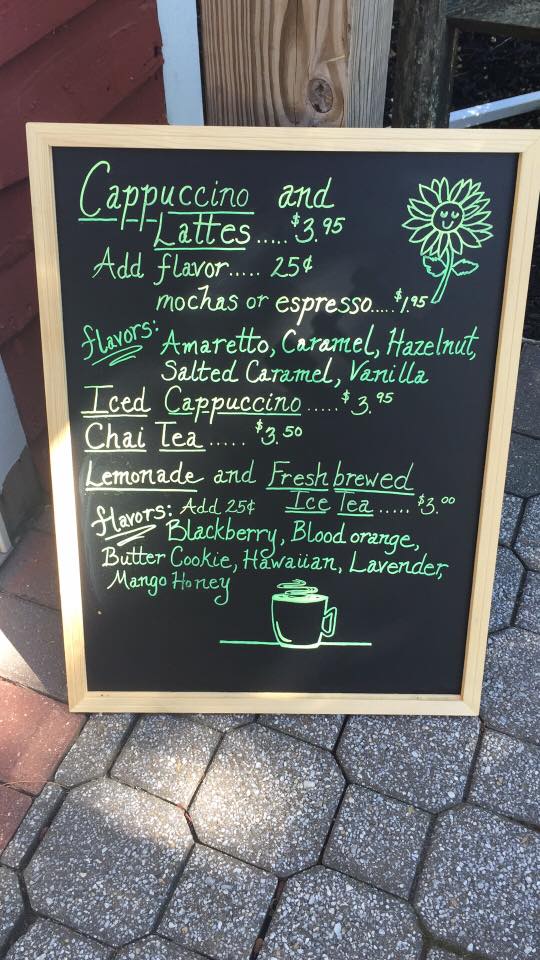 Cappuccino and
Lattes.....$3.95
Add flavor..... 25¢
mochas or espresso....$1.95
flavors: Amaretto, Caramel, Hazelnut,
Salted Caramel, Vanilla
Iced Cappuccino.....$3.95
Chai Tea.....$3.50
Lemonade and Fresh brewed
Ice Tea.....$3.00
flavors: Add 25¢
Blackberry, Blood orange,
Butter Cookie, Hawaiian, Lavender,
Mango Honey